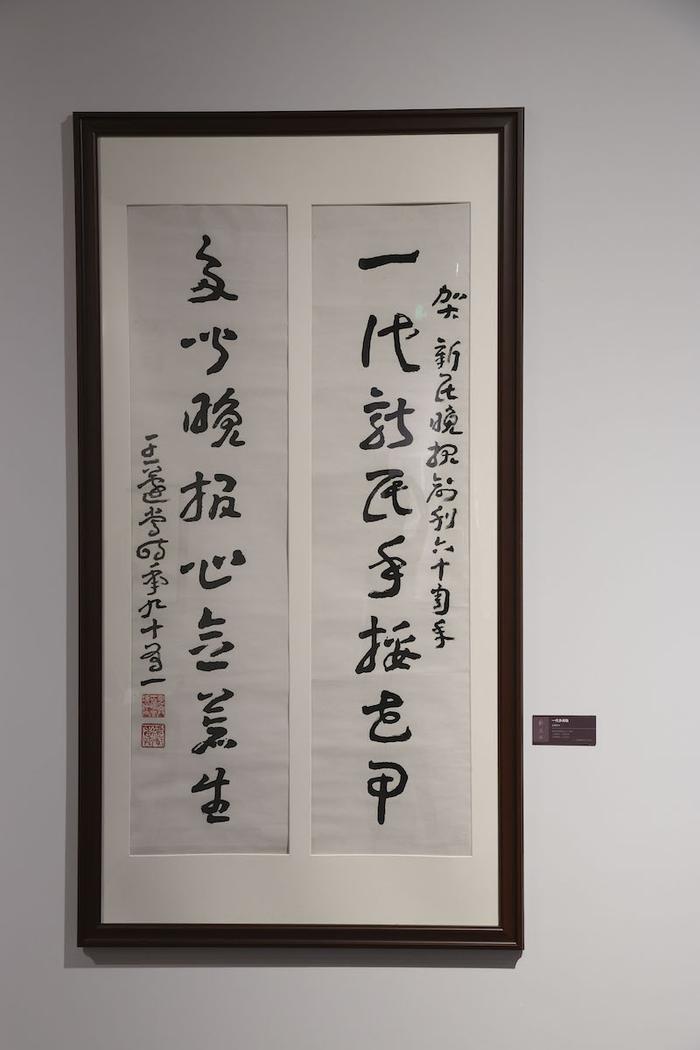 贺 新民晚报创刊六十周年
一代新民年接花甲
晚报心念苍生
王蘧常时年九十有一